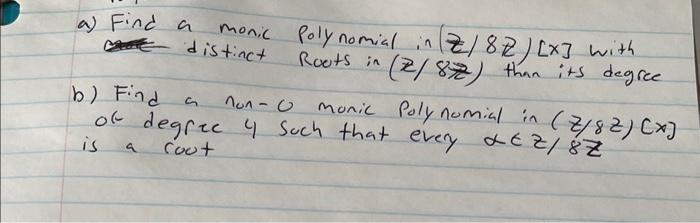 a) Find a monic Polynomial in (Z/8Z)[x] with
distinct Roots in (Z/8Z) than its degree
b) Find a non-0 monic Polynomial in (Z/8Z)[x]
of degree 4 such that every α ∈ Z/8Z
is a root